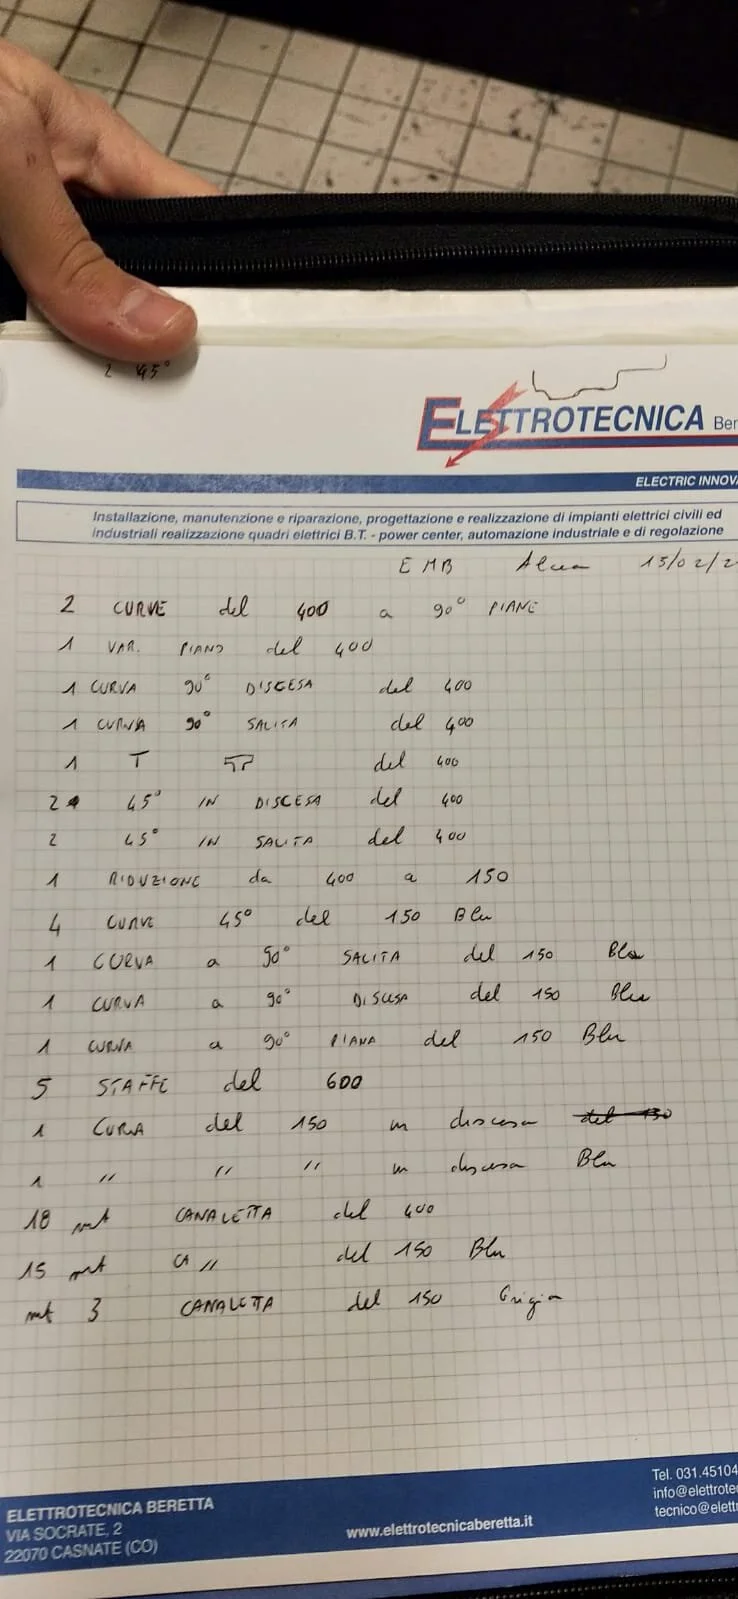 2 45°
ELETTROTECNICA Ber
ELECTRIC INNOVA
Installazione, manutenzione e riparazione, progettazione e realizzazione di impianti elettrici civili ed
industriali realizzazione quadri elettrici B.T. - power center, automazione industriale e di regolazione
EMB 15/02/2
2 CURVE del 400 a 90° PIANE
1 VAR. PIANO del 400
1 CURVA 90° DISCESA del 400
1 CURVA 90° SALITA del 400
1 T del 400
2 45° IN DISCESA del 400
2 45° IN SALITA del 400
1 RIDUZIONE da 400 a 150
4 CURVE 45° del 150 Blu
1 CURVA a 90° SALITA del 150 Blu
1 CURVA a 90° DISCESA del 150 Blu
1 CURVA a 90° PIANA del 150 Blu
5 STAFFE del 600
1 CURVA del 150 in discesa del 150
1 " " " in discesa Blu
18 mt CANALETTA del 400
15 mt CA " del 150 Blu
mt 3 CANALETTA del 150 Grigia
ELETTROTECNICA BERETTA
VIA SOCRATE, 2
22070 CASNATE (CO)
www.elettrotecnicaberetta.it
Tel. 031.45104
info@elettrote
tecnico@elett